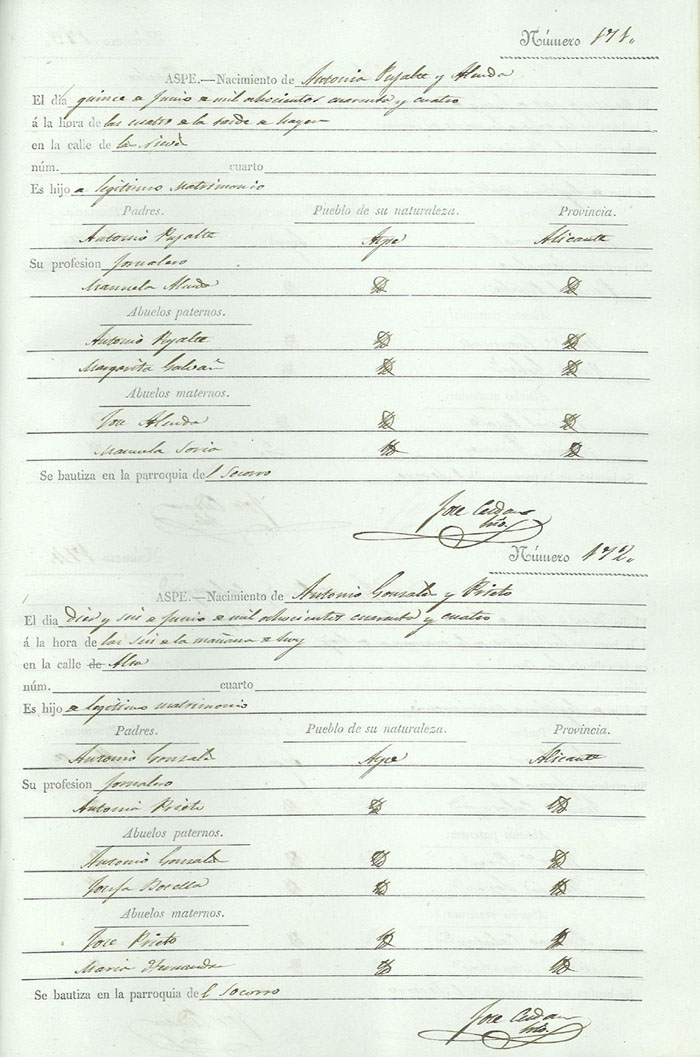 Número 171.
ASPE.—Nacimiento de Antonia Pujalte y Almda
El día quince de Junio de mil ochocientos cuarenta y cuatro
á la hora de las cuatro de la tarde de hayer
en la calle de la
núm. cuarto
Es hijo de legitimo Matrimonio
Padres. Pueblo de su naturaleza. Provincia.
Antonio Pujalte Aspe Alicante
Su profesion Jornalero
Manuela Almda
Abuelos paternos.
Antonio Pujalte
Margarita Galvañ
Abuelos maternos.
Jose Almda
Manuela Soria
Se bautiza en la parroquia del Socorro
Jose Cerdan
Número 172.
ASPE.—Nacimiento de Antonio Gonzale y Prieto
El dia Diez y seis de Junio de mil ochocientos cuarenta y cuatro
á la hora de las seis de la mañana de hoy
en la calle de
núm. cuarto
Es hijo de legitimo matrimonio
Padres. Pueblo de su naturaleza. Provincia.
Antonio Gonzale Aspe Alicante
Su profesion Jornalero
Antonia Prieto
Abuelos paternos.
Antonio Gonzale
Josefa Botella
Abuelos maternos.
Jose Prieto
Maria
Se bautiza en la parroquia del Socorro
Jose Cerdan